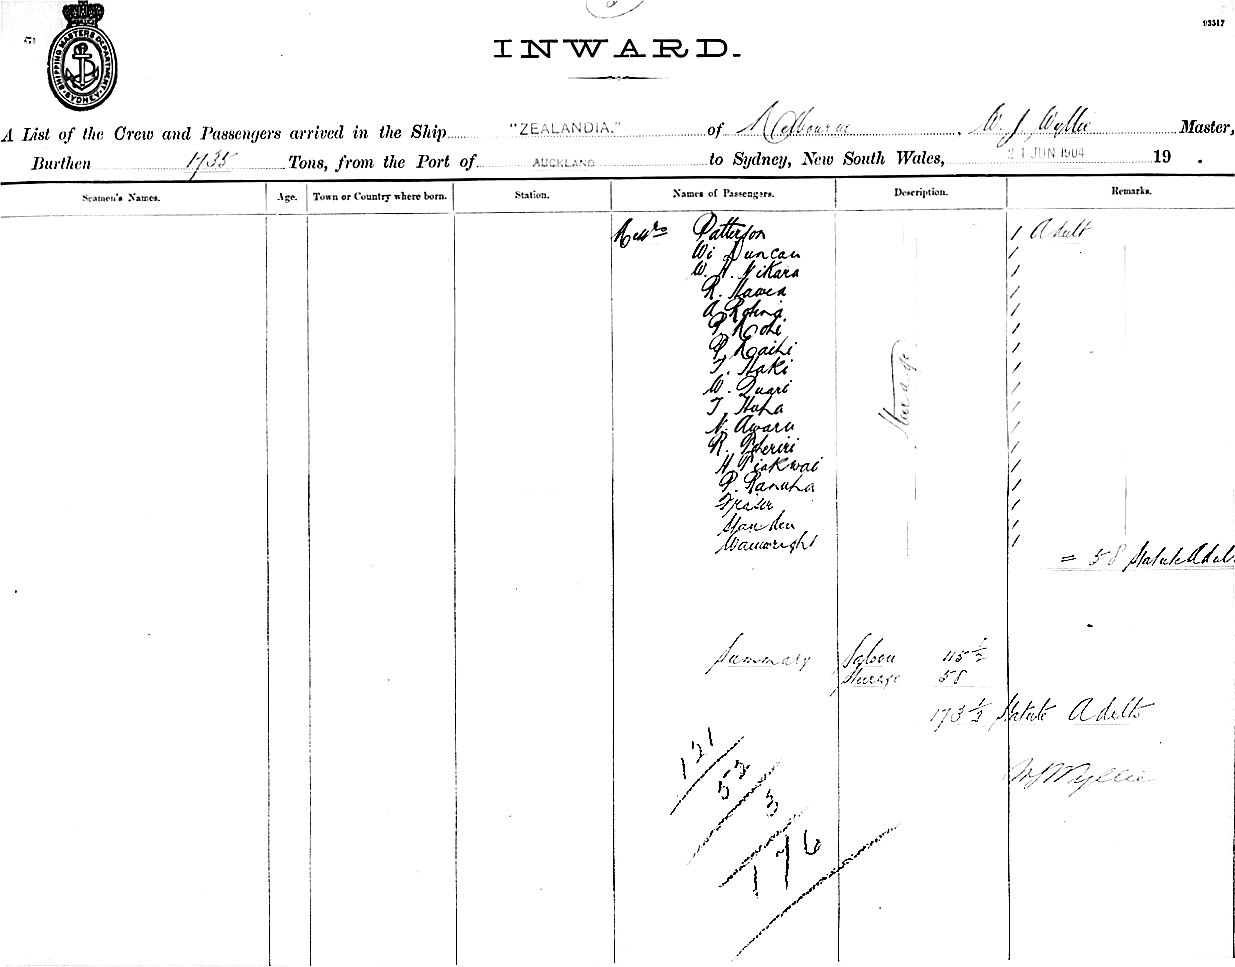 SHIPPING MASTERS DEPARTMENT SYDNEY
03517
INWARD.
A List of the Crew and Passengers arrived in the Ship "ZEALANDIA." of Melbourne, W. J. Wyllie Master,
Burthen 1735 Tons, from the Port of AUCKLAND to Sydney, New South Wales, 21 JUN 1904 19 .
Seamen's Names. Age. Town or Country where born. Station. Names of Passengers. Description. Remarks.
Messrs Patterson 1 Adult
Wi Duncan 1
W. H. Nikara 1
R. Hawea 1
A 1
P. 1
P. Raihi 1
T. Haki 1
W. 1
T. Huha 1
N. Awaru 1
R. 1
H. 1
P. Ranuha 1
Fraser 1
1
Wainwright 1
Steerage
= 58 Statute Adul
Summary Saloon 115 1/2
Steerage 58
173 1/2 Statute Adults
W J Wyllie
121
52
3
176